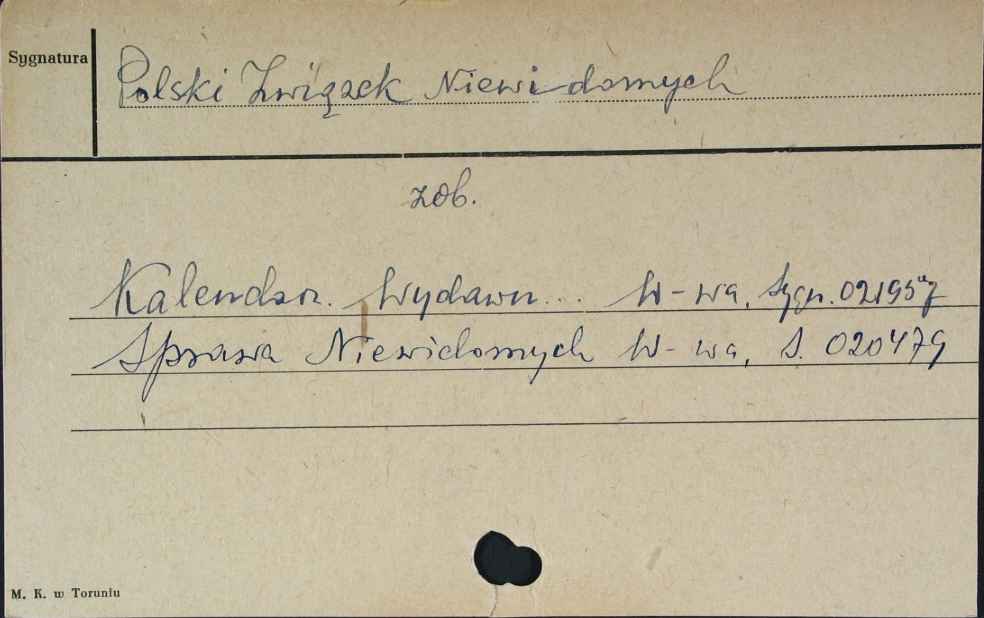 Sygnatura
Polski Związek Niewidomych
zob.
Kalendarz. Wydawn... W-wa, Sygn.
Sprawa Niewidomych W-wa, S. 020479
M. K. w Toruniu